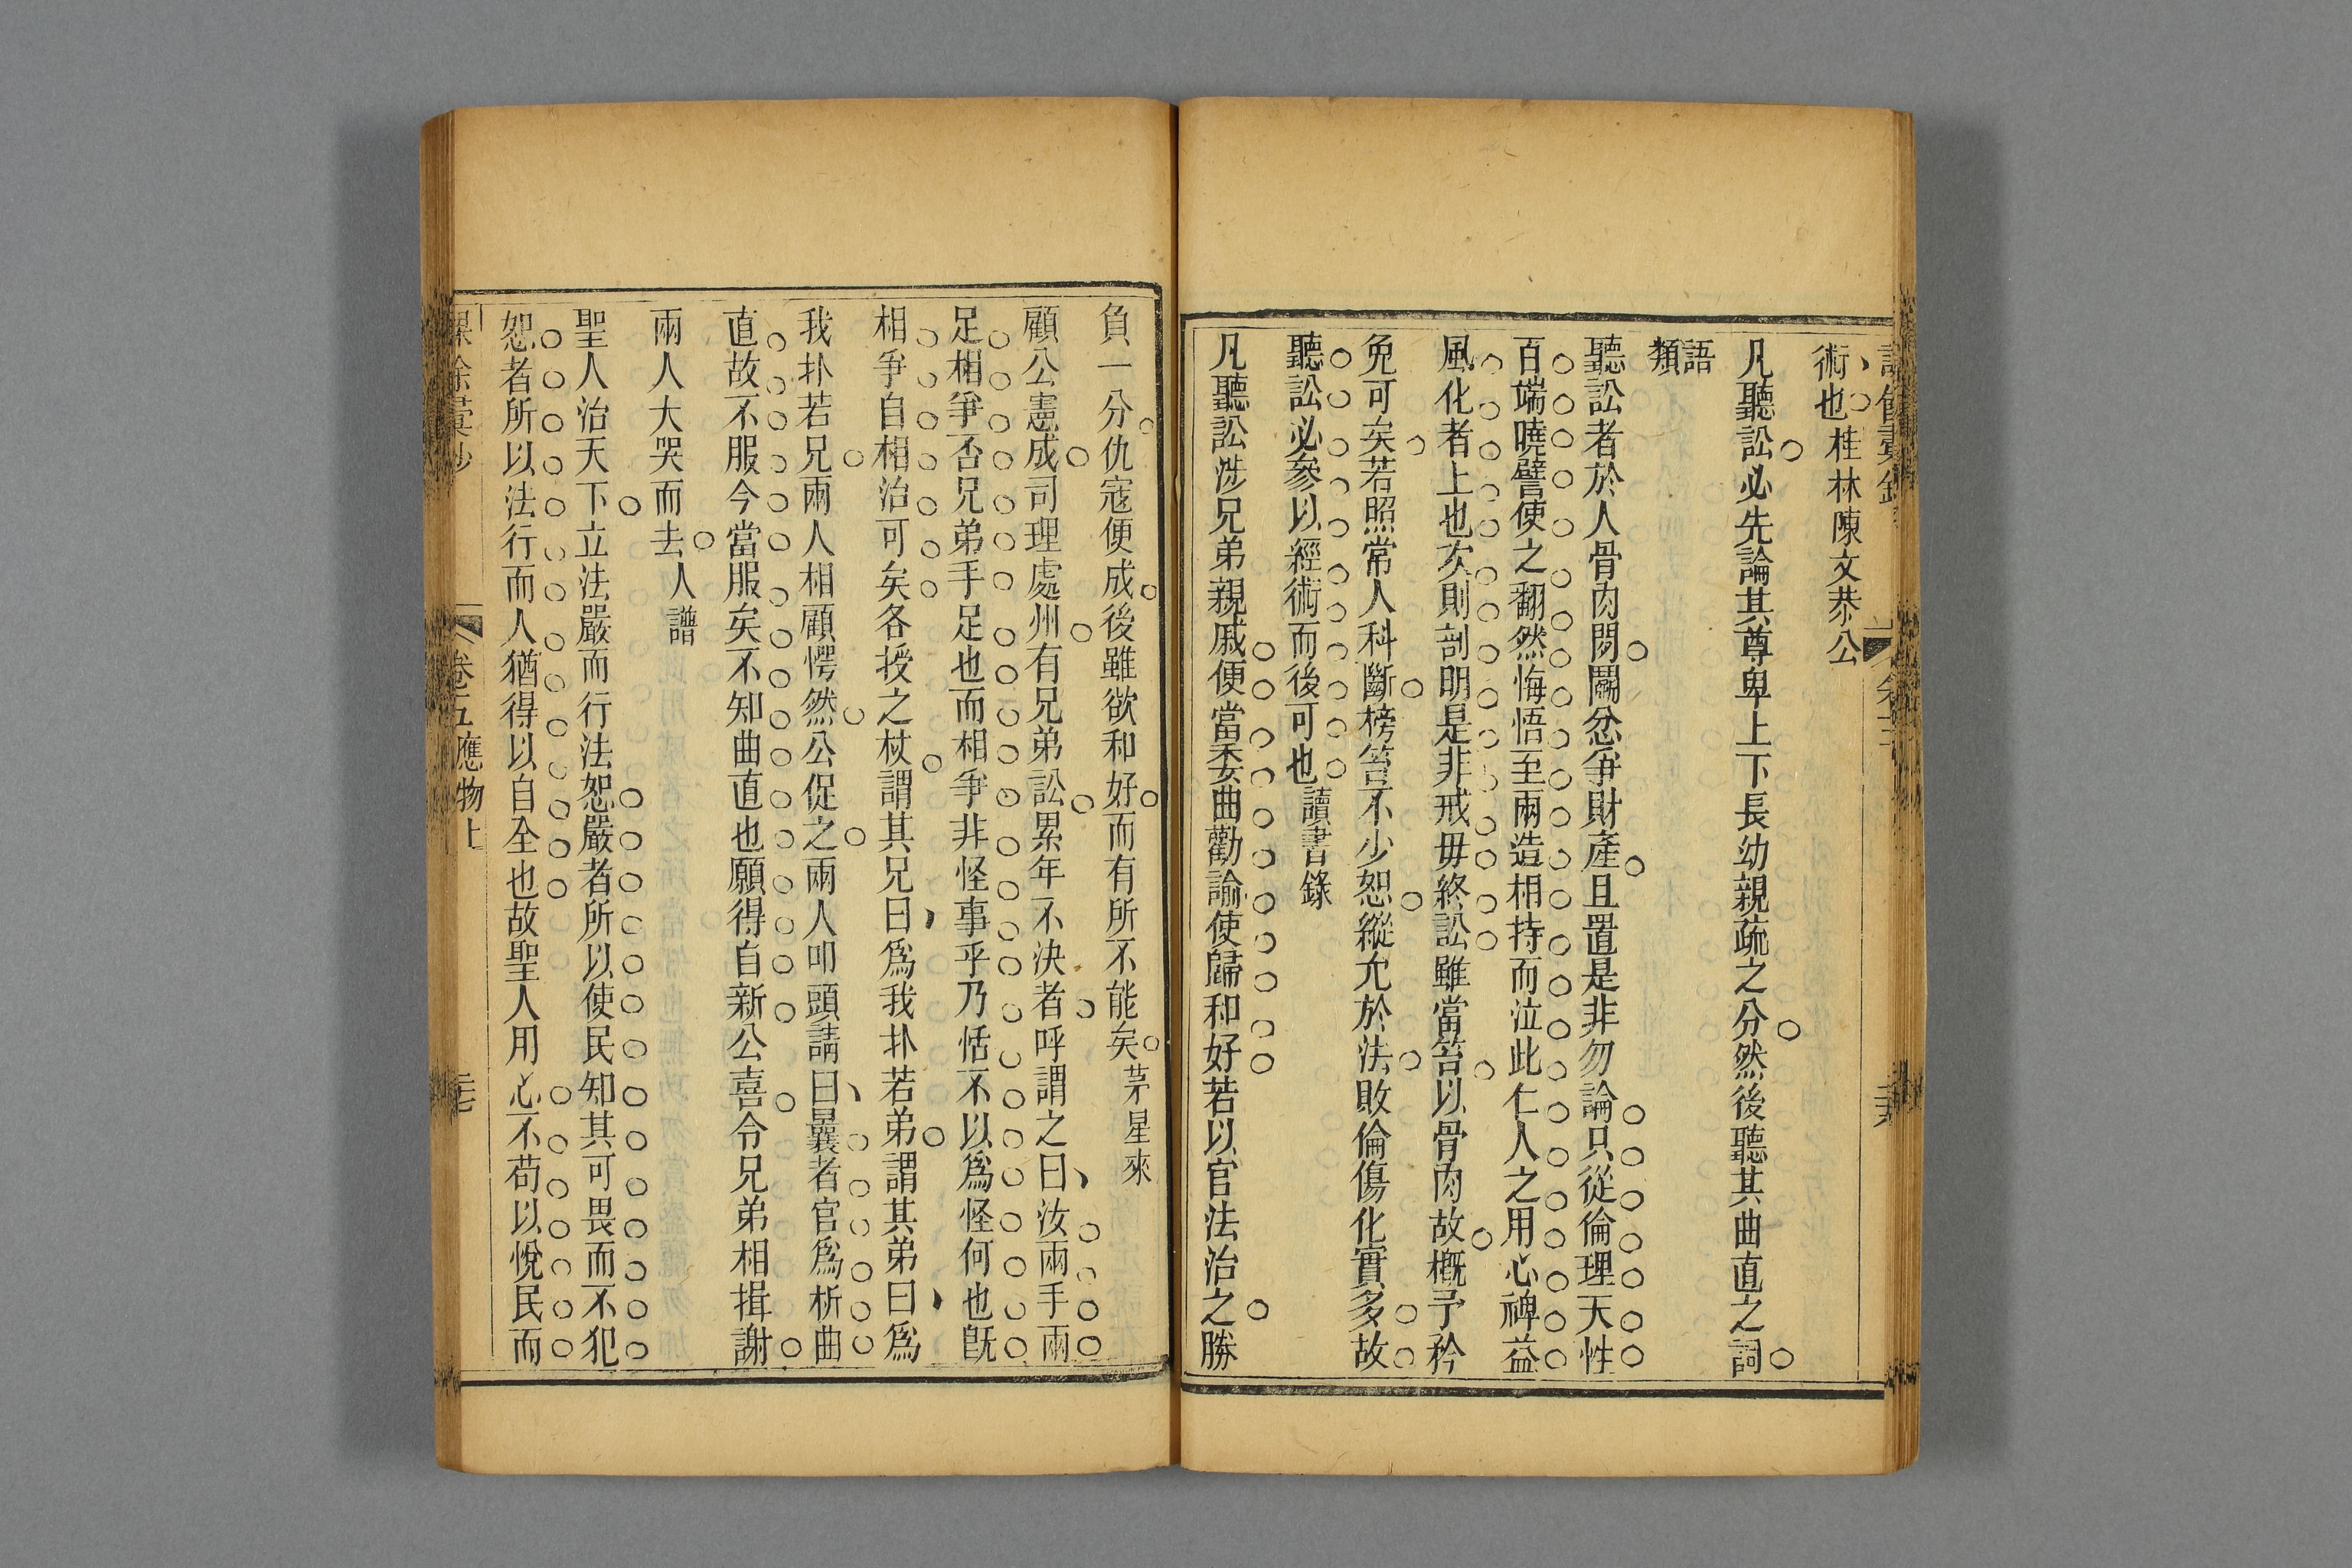 術也桂林陳文恭公
凡聽訟必先論其尊卑上下長幼親疏之分然後聽其曲直之詞
語類
聽訟者於人骨肉鬩鬭忿爭財產且置是非勿論只從倫理天性
百端曉譬使之翻然悔悟至兩造相持而泣此仁人之用心裨益
風化者上也次則剖明是非戒毋終訟雖當笞以骨肉故槪予矜
免可矣若照常人科斷榜笞不少恕縱允於法敗倫傷化實多故
聽訟必參以經術而後可也讀書錄
凡聽訟涉兄弟親戚便當委曲勸諭使歸和好若以官法治之勝
負一分仇寇便成後雖欲和好而有所不能矣茅星來
顧公憲成司理處州有兄弟訟累年不決者呼謂之曰汝兩手兩
足相爭否兄弟手足也而相爭非怪事乎乃恬不以爲怪何也旣
相爭自相治可矣各授之杖謂其兄曰爲我扑若弟謂其弟曰爲
我扑若兄兩人相顧愕然公促之兩人叩頭請曰曩者官爲析曲
直故不服今當服矣不知曲直也願得自新公喜令兄弟相揖謝
兩人大哭而去人譜
聖人治天下立法嚴而行法恕嚴者所以使民知其可畏而不犯
恕者所以法行而人猶得以自全也故聖人用心不苟以悅民而
卷五應物上